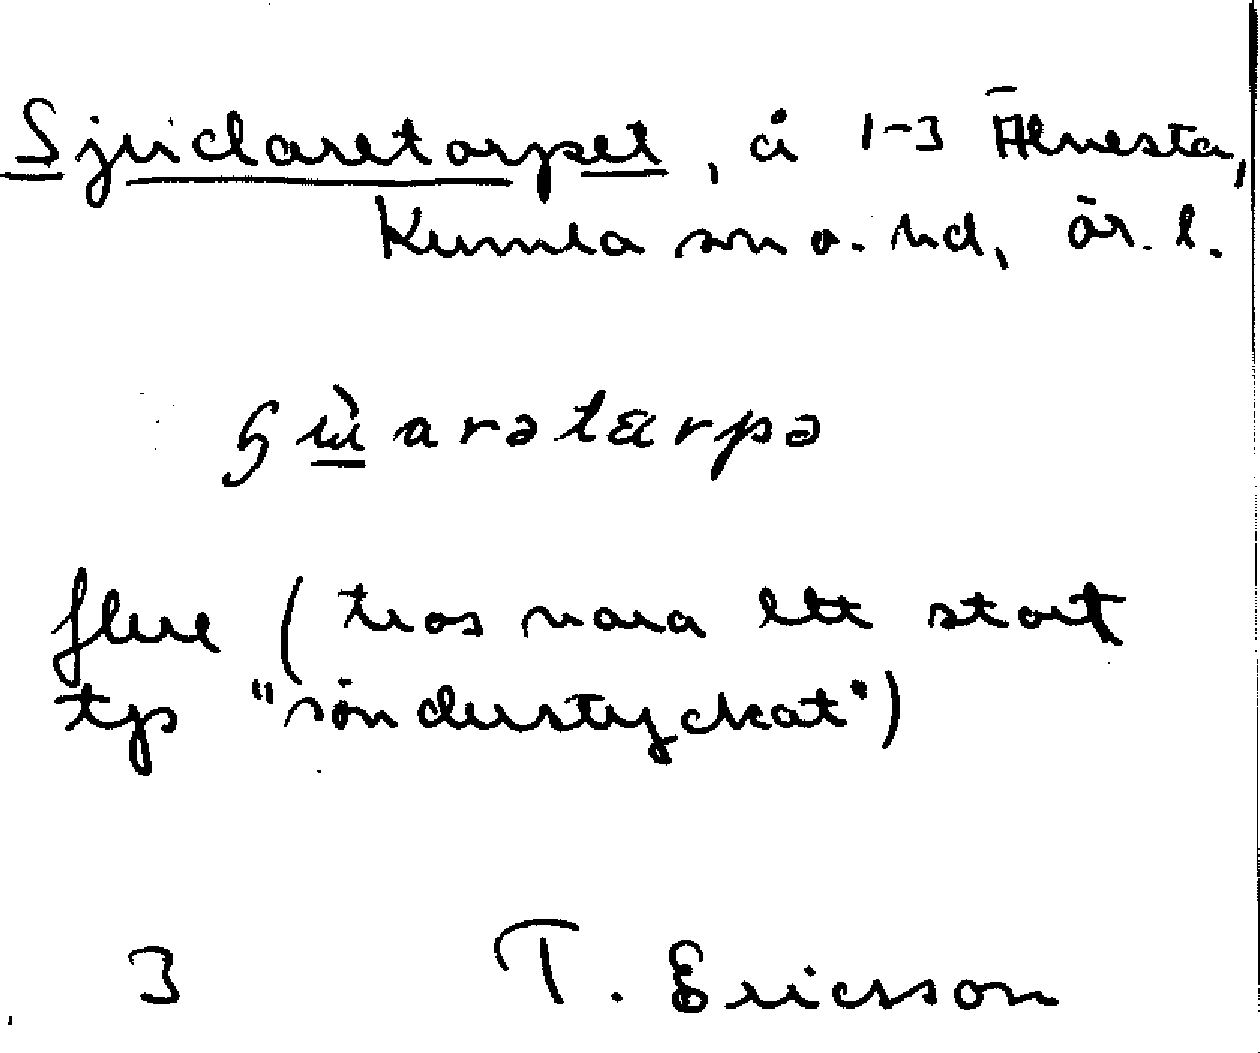 Sjudaretorpet, å 1-3 Älvesta,
Kumla sn o. hd, ör. l.
flere (tros vara ett stort
typ "sönderstyckat")
3 T. Ericson